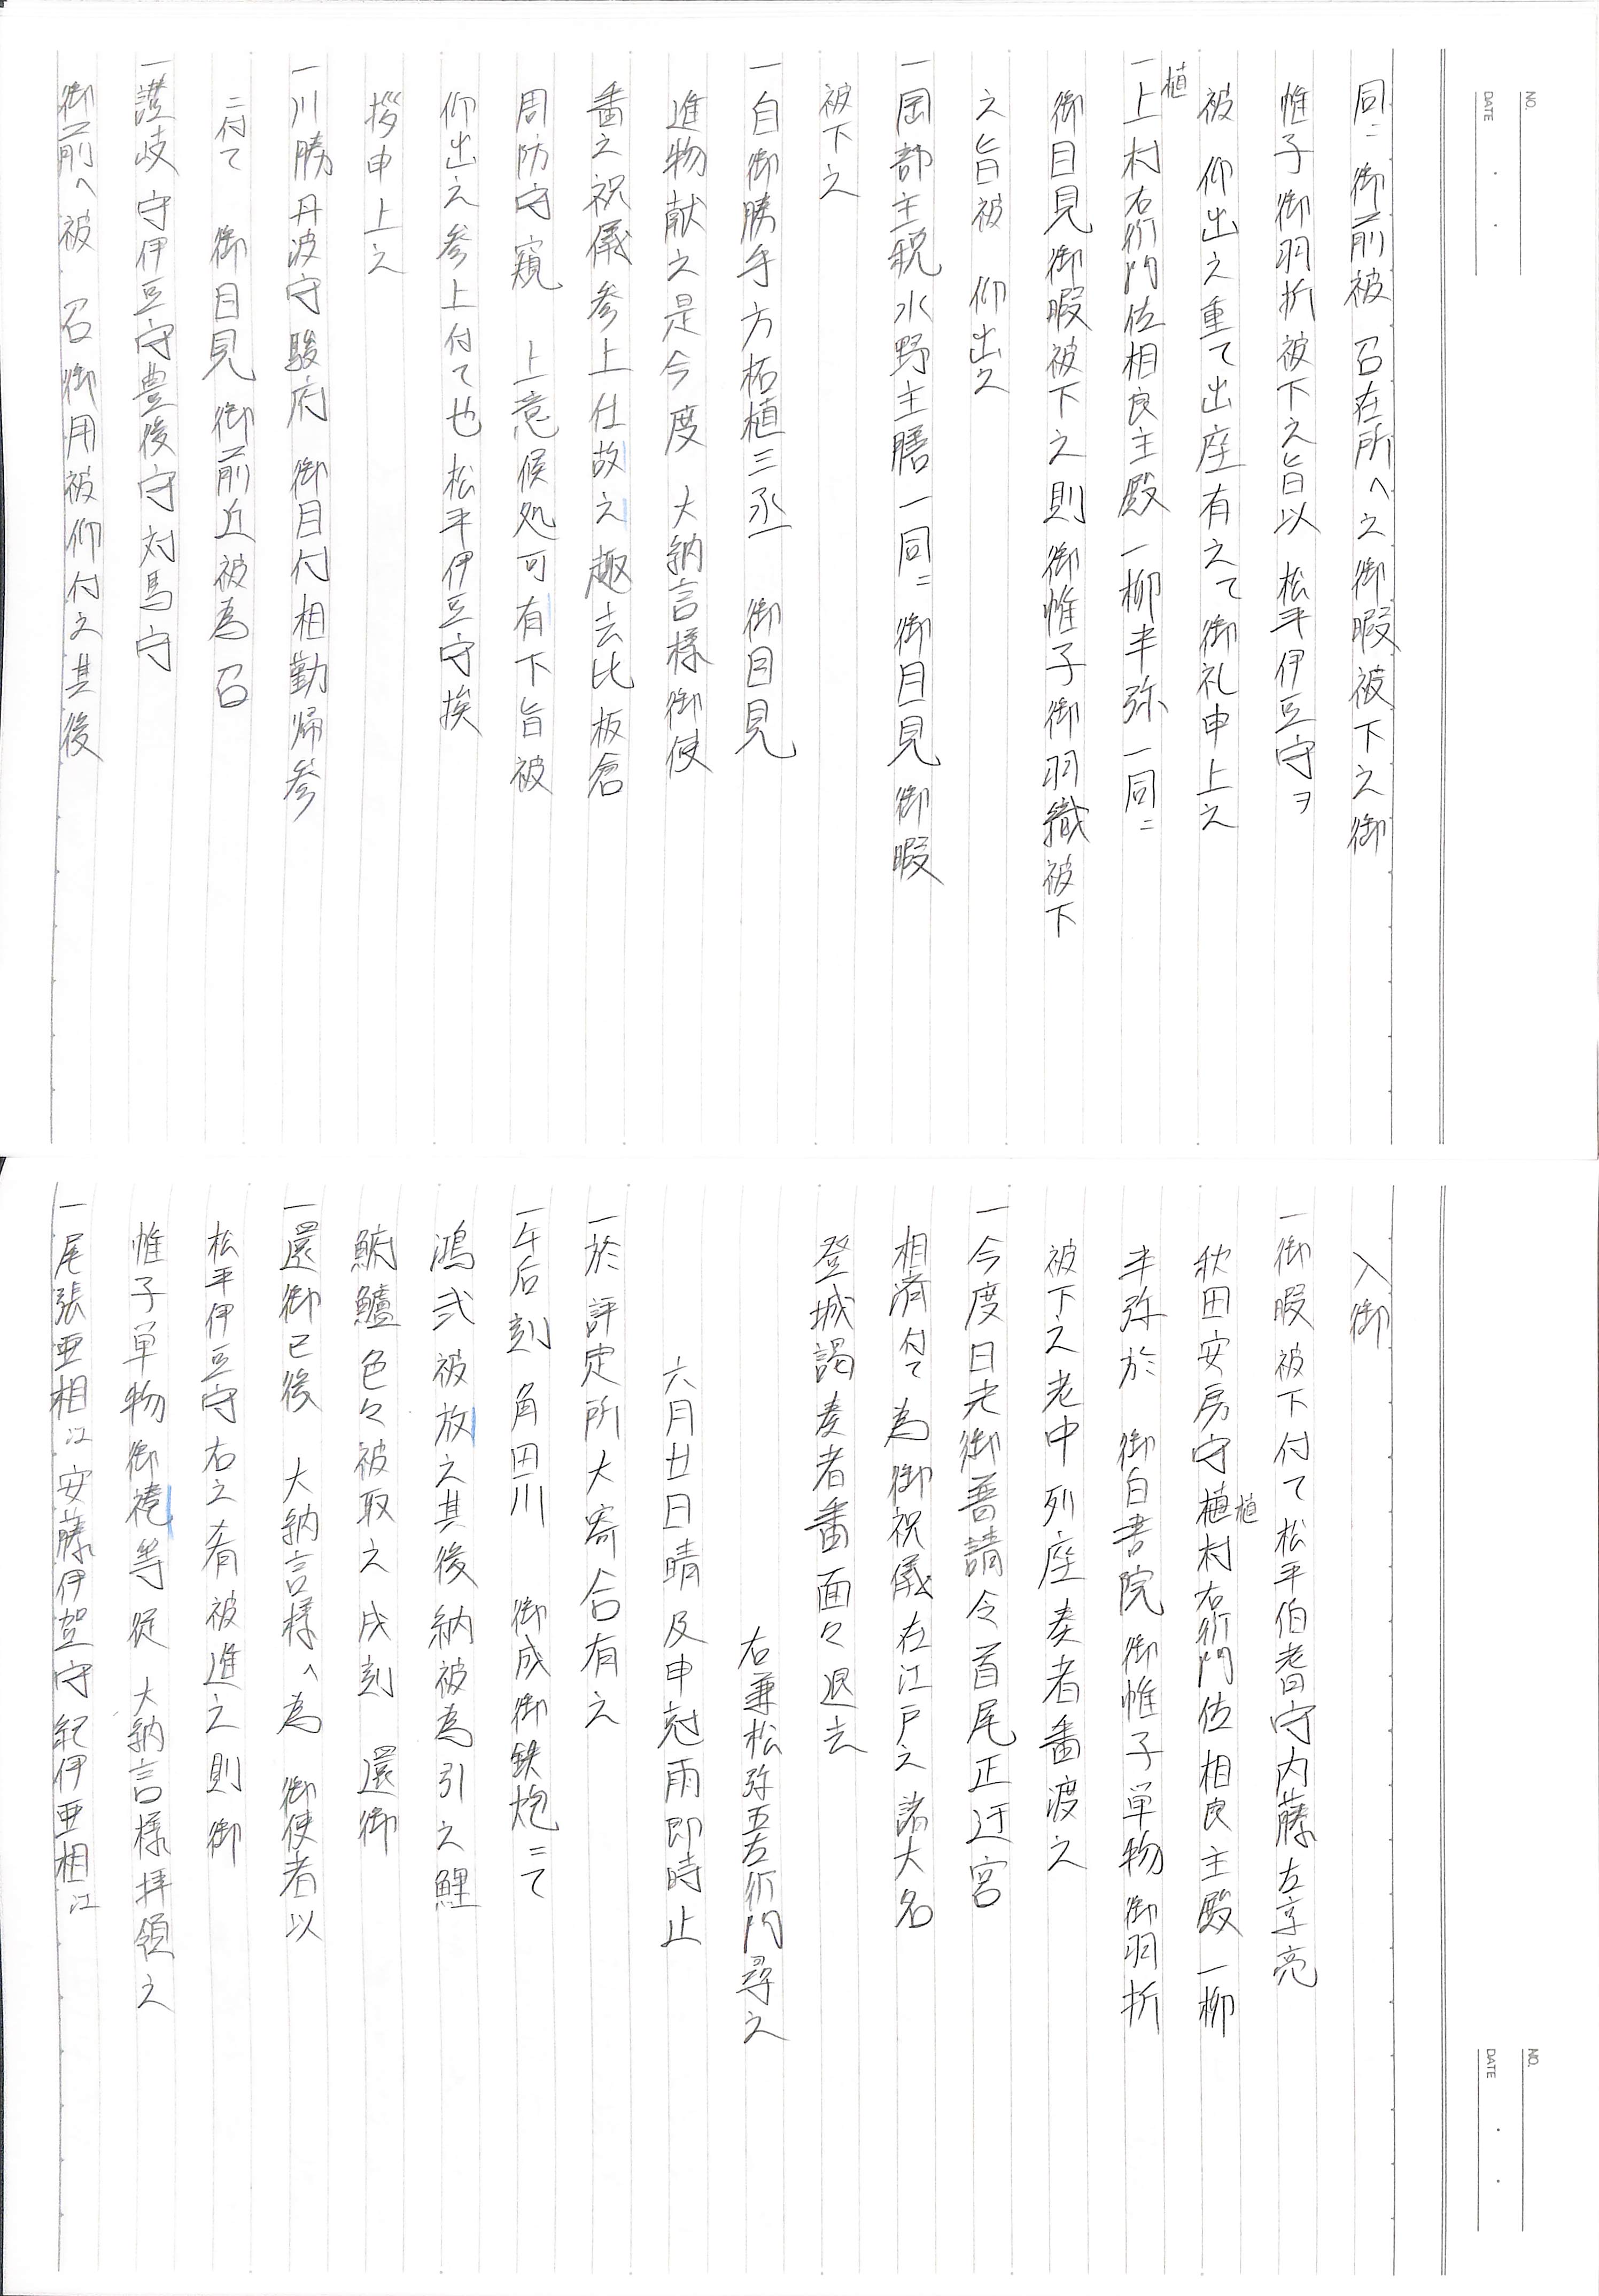 NO.
DATE
同ニ御前被 召在所へ之御暇被下之御
帷子御羽折被下之旨以松平伊豆守ヲ
被 仰出之重て出座有之て御礼申上之
植
一上村右衛門佐相良主殿一柳半弥一同ニ
御目見御暇被下之則御帷子御羽織被下
之旨被 仰出之
一岡部主税水野主膳一同ニ御目見御暇
被下之
一自御勝手方柘植三丞 御目見
進物献之是今度 大納言様御使
番之祝儀参上仕故之趣去比板倉
周防守窺 上意候処可有下旨被
仰出之参上付て也松平伊豆守挨
拶申上之
一川勝丹波守駿府御目付相勤帰参
ニ付て 御目見御前近被為召
一讃岐守伊豆守豊後守対馬守
御前へ被 召御用被仰付之其後
NO.
DATE
入御
一御暇被下付て松平伯耆守内藤左京亮
秋田安房守植村右衛門佐相良主殿一柳
植
半弥於 御白書院御帷子単物御羽折
被下之老中列座奏者番渡之
一今度日光御普請令首尾正迂宮
相済付て為御祝儀在江戸之諸大名
登城謁奏者番面々退去
右兼松弥五左衛門尋之
六月廿日晴及申尅雨即時止
一於評定所大寄合有之
一午后刻 角田川 御成御鉄炮ニて
鴻弐被放之其後納被為引之鯉
鮒鱸色々被取之戌刻 還御
一還御已後 大納言様へ為 御使者以
松平伊豆守右之肴被進之則御
帷子単物御袴等従 大納言様拝領之
一尾張亜相江安藤伊賀守紀伊亜相江